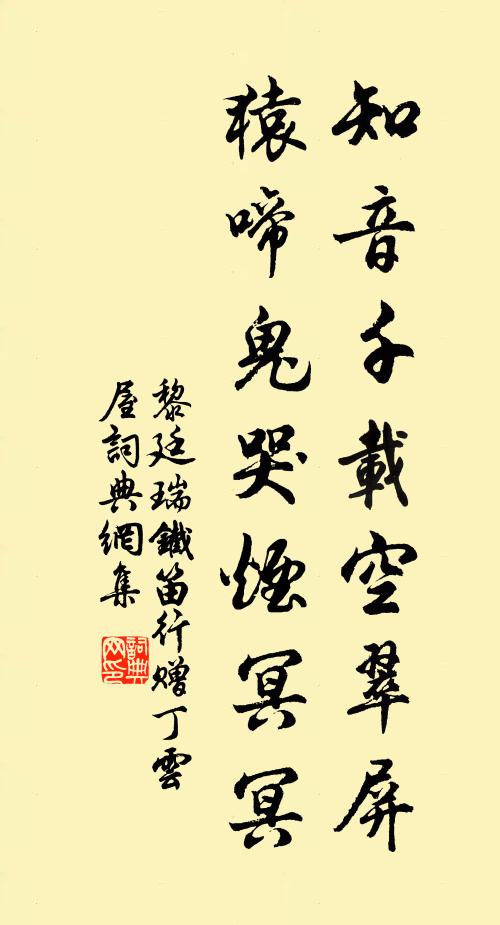 知音千載空翠屏
猿啼鬼哭煙冥冥
黎廷瑞鐵笛行贈丁雲
屋詞典網集
詞典网印